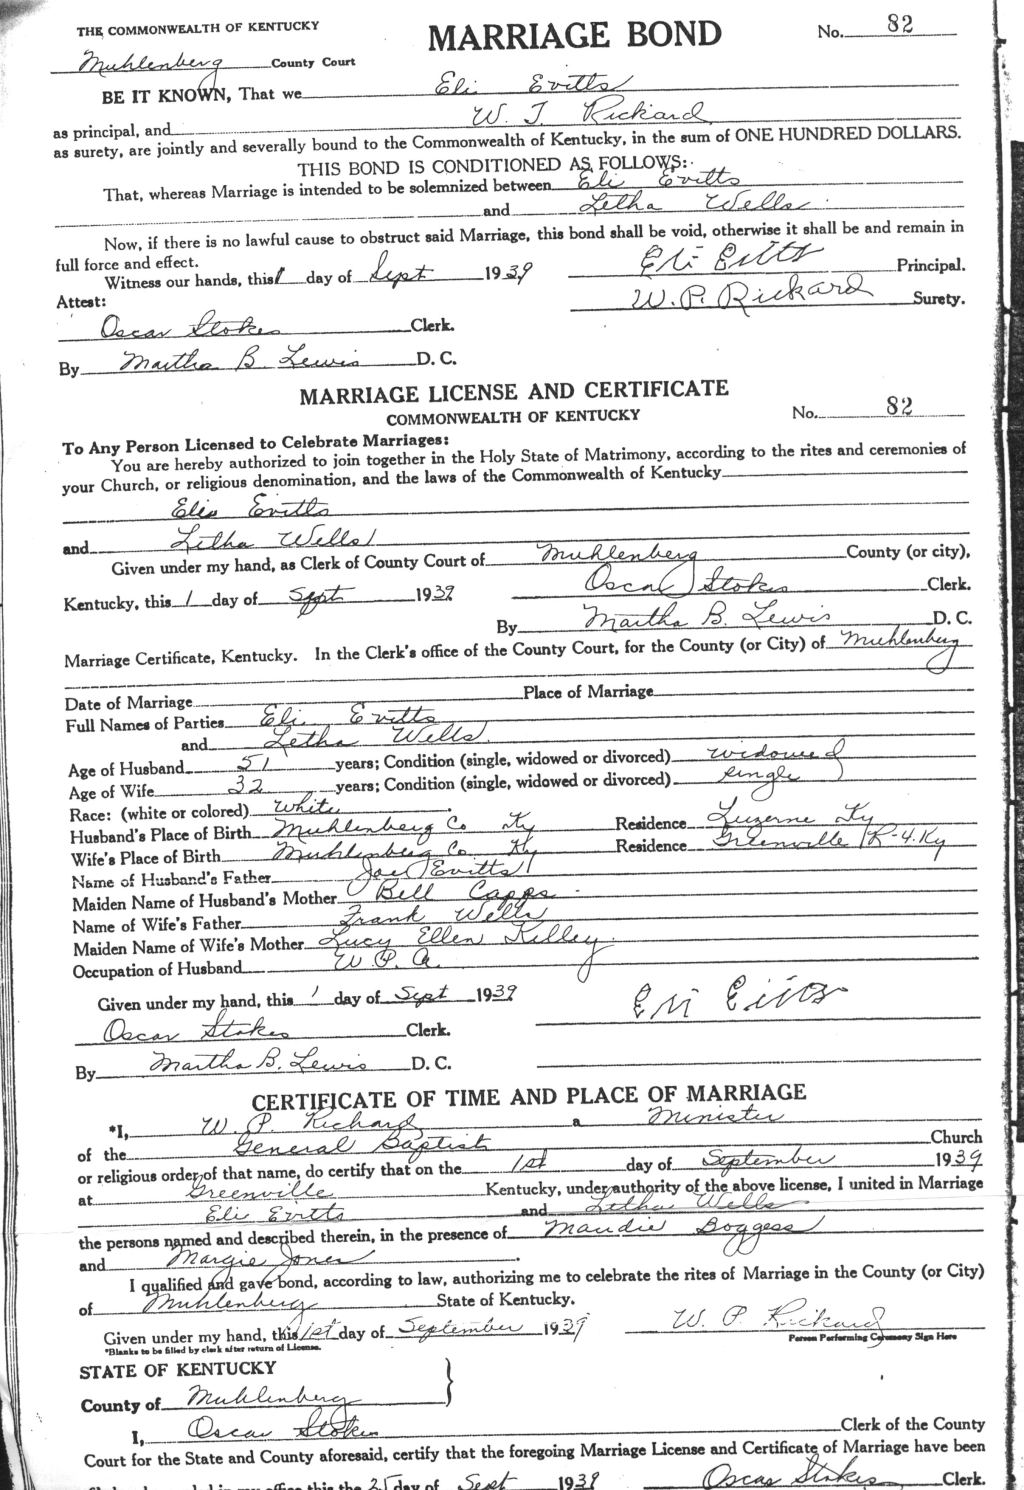 THE COMMONWEALTH OF KENTUCKY
MARRIAGE BOND
No. 82
Muhlenberg County Court
BE IT KNOWN, That we Eli Evitts
as principal, and W. T. Rickard
as surety, are jointly and severally bound to the Commonwealth of Kentucky, in the sum of ONE HUNDRED DOLLARS.
THIS BOND IS CONDITIONED AS FOLLOWS:
That, whereas Marriage is intended to be solemnized between Eli Evitts
and Letha Wells
Now, if there is no lawful cause to obstruct said Marriage, this bond shall be void, otherwise it shall be and remain in
full force and effect.
Witness our hands, this 1 day of Sept 1939 Eli Evitts Principal.
Attest: W. P. Rickard Surety.
Oscar Stokes Clerk.
By Martha B. Lewis D. C.
MARRIAGE LICENSE AND CERTIFICATE
COMMONWEALTH OF KENTUCKY
No. 82
To Any Person Licensed to Celebrate Marriages:
You are hereby authorized to join together in the Holy State of Matrimony, according to the rites and ceremonies of
your Church, or religious denomination, and the laws of the Commonwealth of Kentucky
Eli Evitts
and Letha Wells
Given under my hand, as Clerk of County Court of Muhlenberg County (or city),
Kentucky, this 1 day of Sept 1939 Oscar Stokes Clerk.
By Martha B. Lewis D. C.
Marriage Certificate, Kentucky. In the Clerk's office of the County Court, for the County (or City) of Muhlenberg
Date of Marriage Place of Marriage
Full Names of Parties Eli Evitts
and Letha Wells
Age of Husband 51 years; Condition (single, widowed or divorced) widowed
Age of Wife 32 years; Condition (single, widowed or divorced) single
Race: (white or colored) White
Husband's Place of Birth Muhlenberg Co Ky Residence Luzerne Ky
Wife's Place of Birth Muhlenberg Co Ky Residence Greenville R-4. Ky
Name of Husband's Father Joe Evitts
Maiden Name of Husband's Mother Bell Capps
Name of Wife's Father Frank Wells
Maiden Name of Wife's Mother Lucy Ellen Killey
Occupation of Husband W P. A.
Given under my hand, this 1 day of Sept 1939 Eli Evitts
Oscar Stokes Clerk.
By Martha B. Lewis D. C.
CERTIFICATE OF TIME AND PLACE OF MARRIAGE
*I, W. P Richard a Minister
of the General Baptist Church
or religious order of that name, do certify that on the 1st day of September 1939
at Greenville Kentucky, under authority of the above license, I united in Marriage
Eli Evitts and Letha Wells
the persons named and described therein, in the presence of Maudie Boggess
and Margie Jones
I qualified and gave bond, according to law, authorizing me to celebrate the rites of Marriage in the County (or City)
of Muhlenberg State of Kentucky.
Given under my hand, this 1st day of September 1939 W. P. Rickard
*Blanks to be filled by clerk after return of License. Person Performing Ceremony Sign Here
STATE OF KENTUCKY
County of Muhlenberg
I, Oscar Stokes Clerk of the County
Court for the State and County aforesaid, certify that the foregoing Marriage License and Certificate of Marriage have been
office this the 25 day of Sept 1939 Oscar Stokes Clerk.